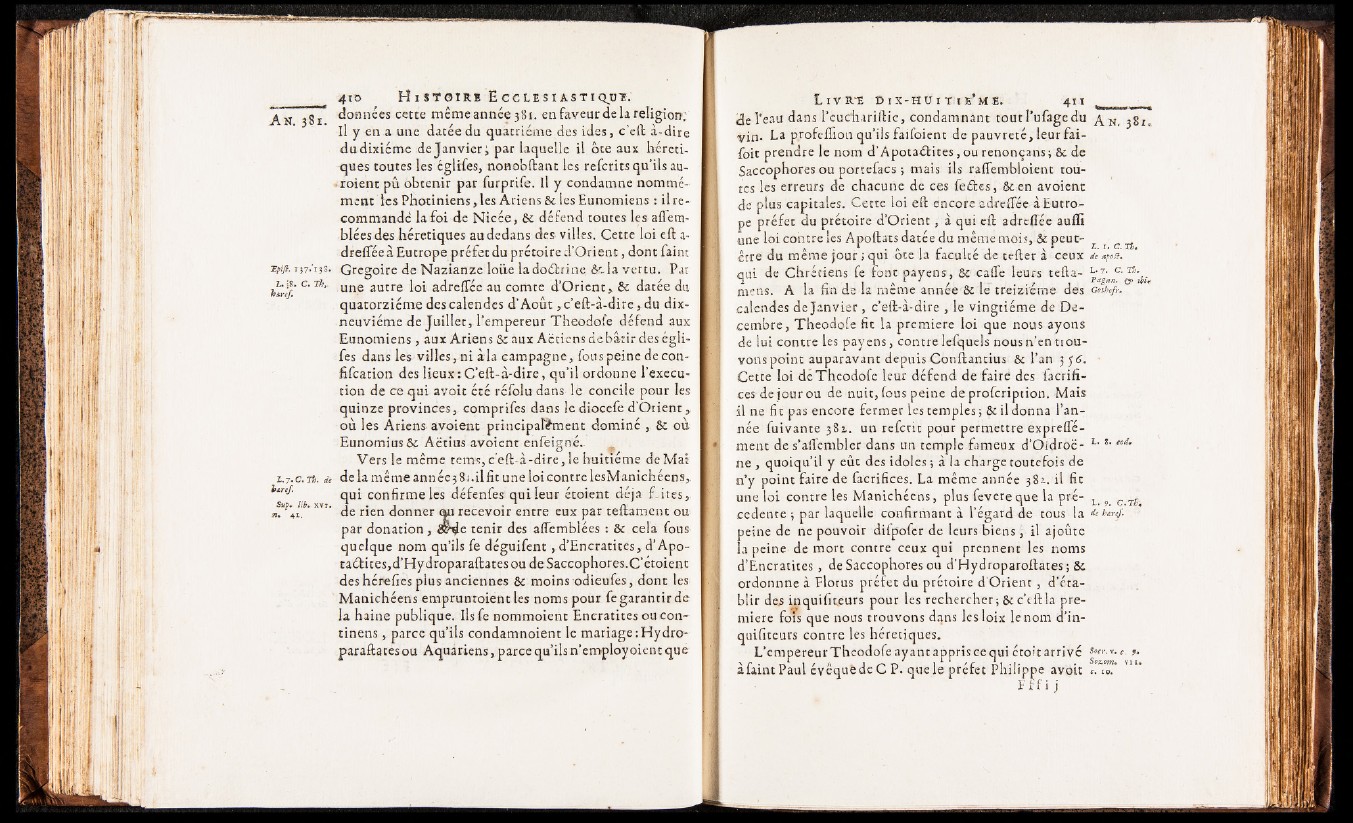 410 HISTOIRE ECCLESIASTIQUE.
AN. 381.
données cette même année 381. en faveur de la religion.
Il y en a une datée du quatriéme des ides, c'est à-dire
du dixiéme de Janvier; par laquelle il ôte aux héreti-
ques toutes les églises, nonobstant les rescrits qu'ils au-
roient pû obtenir par surprise. Il y condamne nommé-
ment les Photiniens, les Ariens & les Eunomiens : il re-
commande la foi de Nicée, & défend toutes les assem-
blées des héretiques au dedans des villes. Cette loi est a-
dressée à Eutrope préfet du prétoire d'Orient, dont saint
Gregoire de Nazianze loüe la doctrine & la vertu. Par
une autre loi adressée au comte d'Orient, & datée du
quatorziéme des calendes d'Août, c'est-à-dire, du dix-
neuviéme de Juillet, l'empereur Theodose défend aux
Eunomiens, aux Ariens & aux Aëtiens de bâtir des égli-
ses dans les villes, ni à la campagne, sous peine de con-
fiscation des lieux : C'est-à-dire, qu'il ordonne l'execu-
tion de ce qui avoit été résolu dans le concile pour les
quinze provinces, comprises dans le diocese d'Orient,
où les Ariens avoient principalement dominé, & où
Eunomius & Aëtius avoient enseigné.
Vers le même tems, c'est-à-dire, le huitiéme de Mai
de la même année 381. il fit une loi contre les Manichéens,
qui confirme les défenses qui leur étoient déja faites,
de rien donner ou recevoir entre eux par testament ou
par donation, & de tenir des assemblées : & cela sous
quelque nom qu'ils se déguisent, d'Encratites, d'Apo-
tactites, d'Hydroparastates ou de Saccophores. C'étoient
des héresies plus anciennes & moins odieuses, dont les
Manichéens empruntoient les noms pour se garantir de
la haine publique. Ils se nommoient Encratites ou con-
tinens, parce qu'ils condamnoient le mariage : Hydro-
parastates ou Aquariens, parce qu'ils n'employoient que
Epist. 137. 138.
L. 8. C. Th.
hæres.
L. 7. C. Th. de
hæres.
Sup. lib. XVI.
n. 41.
LIVRE DIX-HUITIE'ME. 411
AN. 381.
de l'eau dans l'eucharistie, condamnant tout l'usage du
vin. La profession qu'ils faisoient de pauvreté, leur fai-
soit prendre le nom d'Apotactites, ou renonçans; & de
Saccophores ou portesacs ; mais ils rassembloient tou-
tes les erreurs de chacune de ces sectes, & en avoient
de plus capitales. Cette loi est encore adressée à Eutro-
pe préfet du prétoire d'Orient, à qui est adressée aussi
une loi contre les Apostats datée du même mois, & peut-
être du même jour ; qui ôte la faculté de tester à ceux
qui de Chrétiens se font payens, & casse leurs testa-
mens. A la fin de la même année & le treiziéme des
calendes de Janvier, c'est-à-dire, le vingtiéme de De-
cembre, Theodose fit la premiere loi que nous ayons
de lui contre les payens, contre lesquels nous n'en trou-
vons point auparavant depuis Constantius & l'an 356.
Cette loi de Theodose leur défend de faire des sacrifi-
ces de jour ou de nuit, sous peine de proscription. Mais
il ne fit pas encore fermer les temples; & il donna l'an-
née suivante 382. un rescrit pour permettre expressé-
ment de s'assembler dans un temple fameux d'Oidroë-
ne, quoiqu'il y eût des idoles ; à la charge toutefois de
n'y point faire de sacrifices. La même année 382. il fit
une loi contre les Manichéens, plus severe que la pré-
cedente ; par laquelle confirmant à l'égard de tous la
peine de ne pouvoir disposer de leurs biens, il ajoûte
la peine de mort contre ceux qui prennent les noms
d'Encratites, de Saccophores ou d'Hydroparostates ; &
ordonnne à Florus préfet du prétoire d'Orient, d'éta-
blir des inquisiteurs pour les rechercher; & c'est la pre-
miere fois que nous trouvons dans les loix le nom d'in-
quisiteurs contre les héretiques.
L'empereur Theodose ayant appris ce qui étoit arrivé
à saint Paul évêque de C P. que le préfet Philippe avoit
L. 1. C. Th.
de apost.
L. 7. C. Th.
Pagan. & ibi.
Gothofr.
L. 8. eod.
L. 9. C. Th.
de hæres.
Socr. v. c. 9.
Sozom. VII.
c. 10.
Fff ij